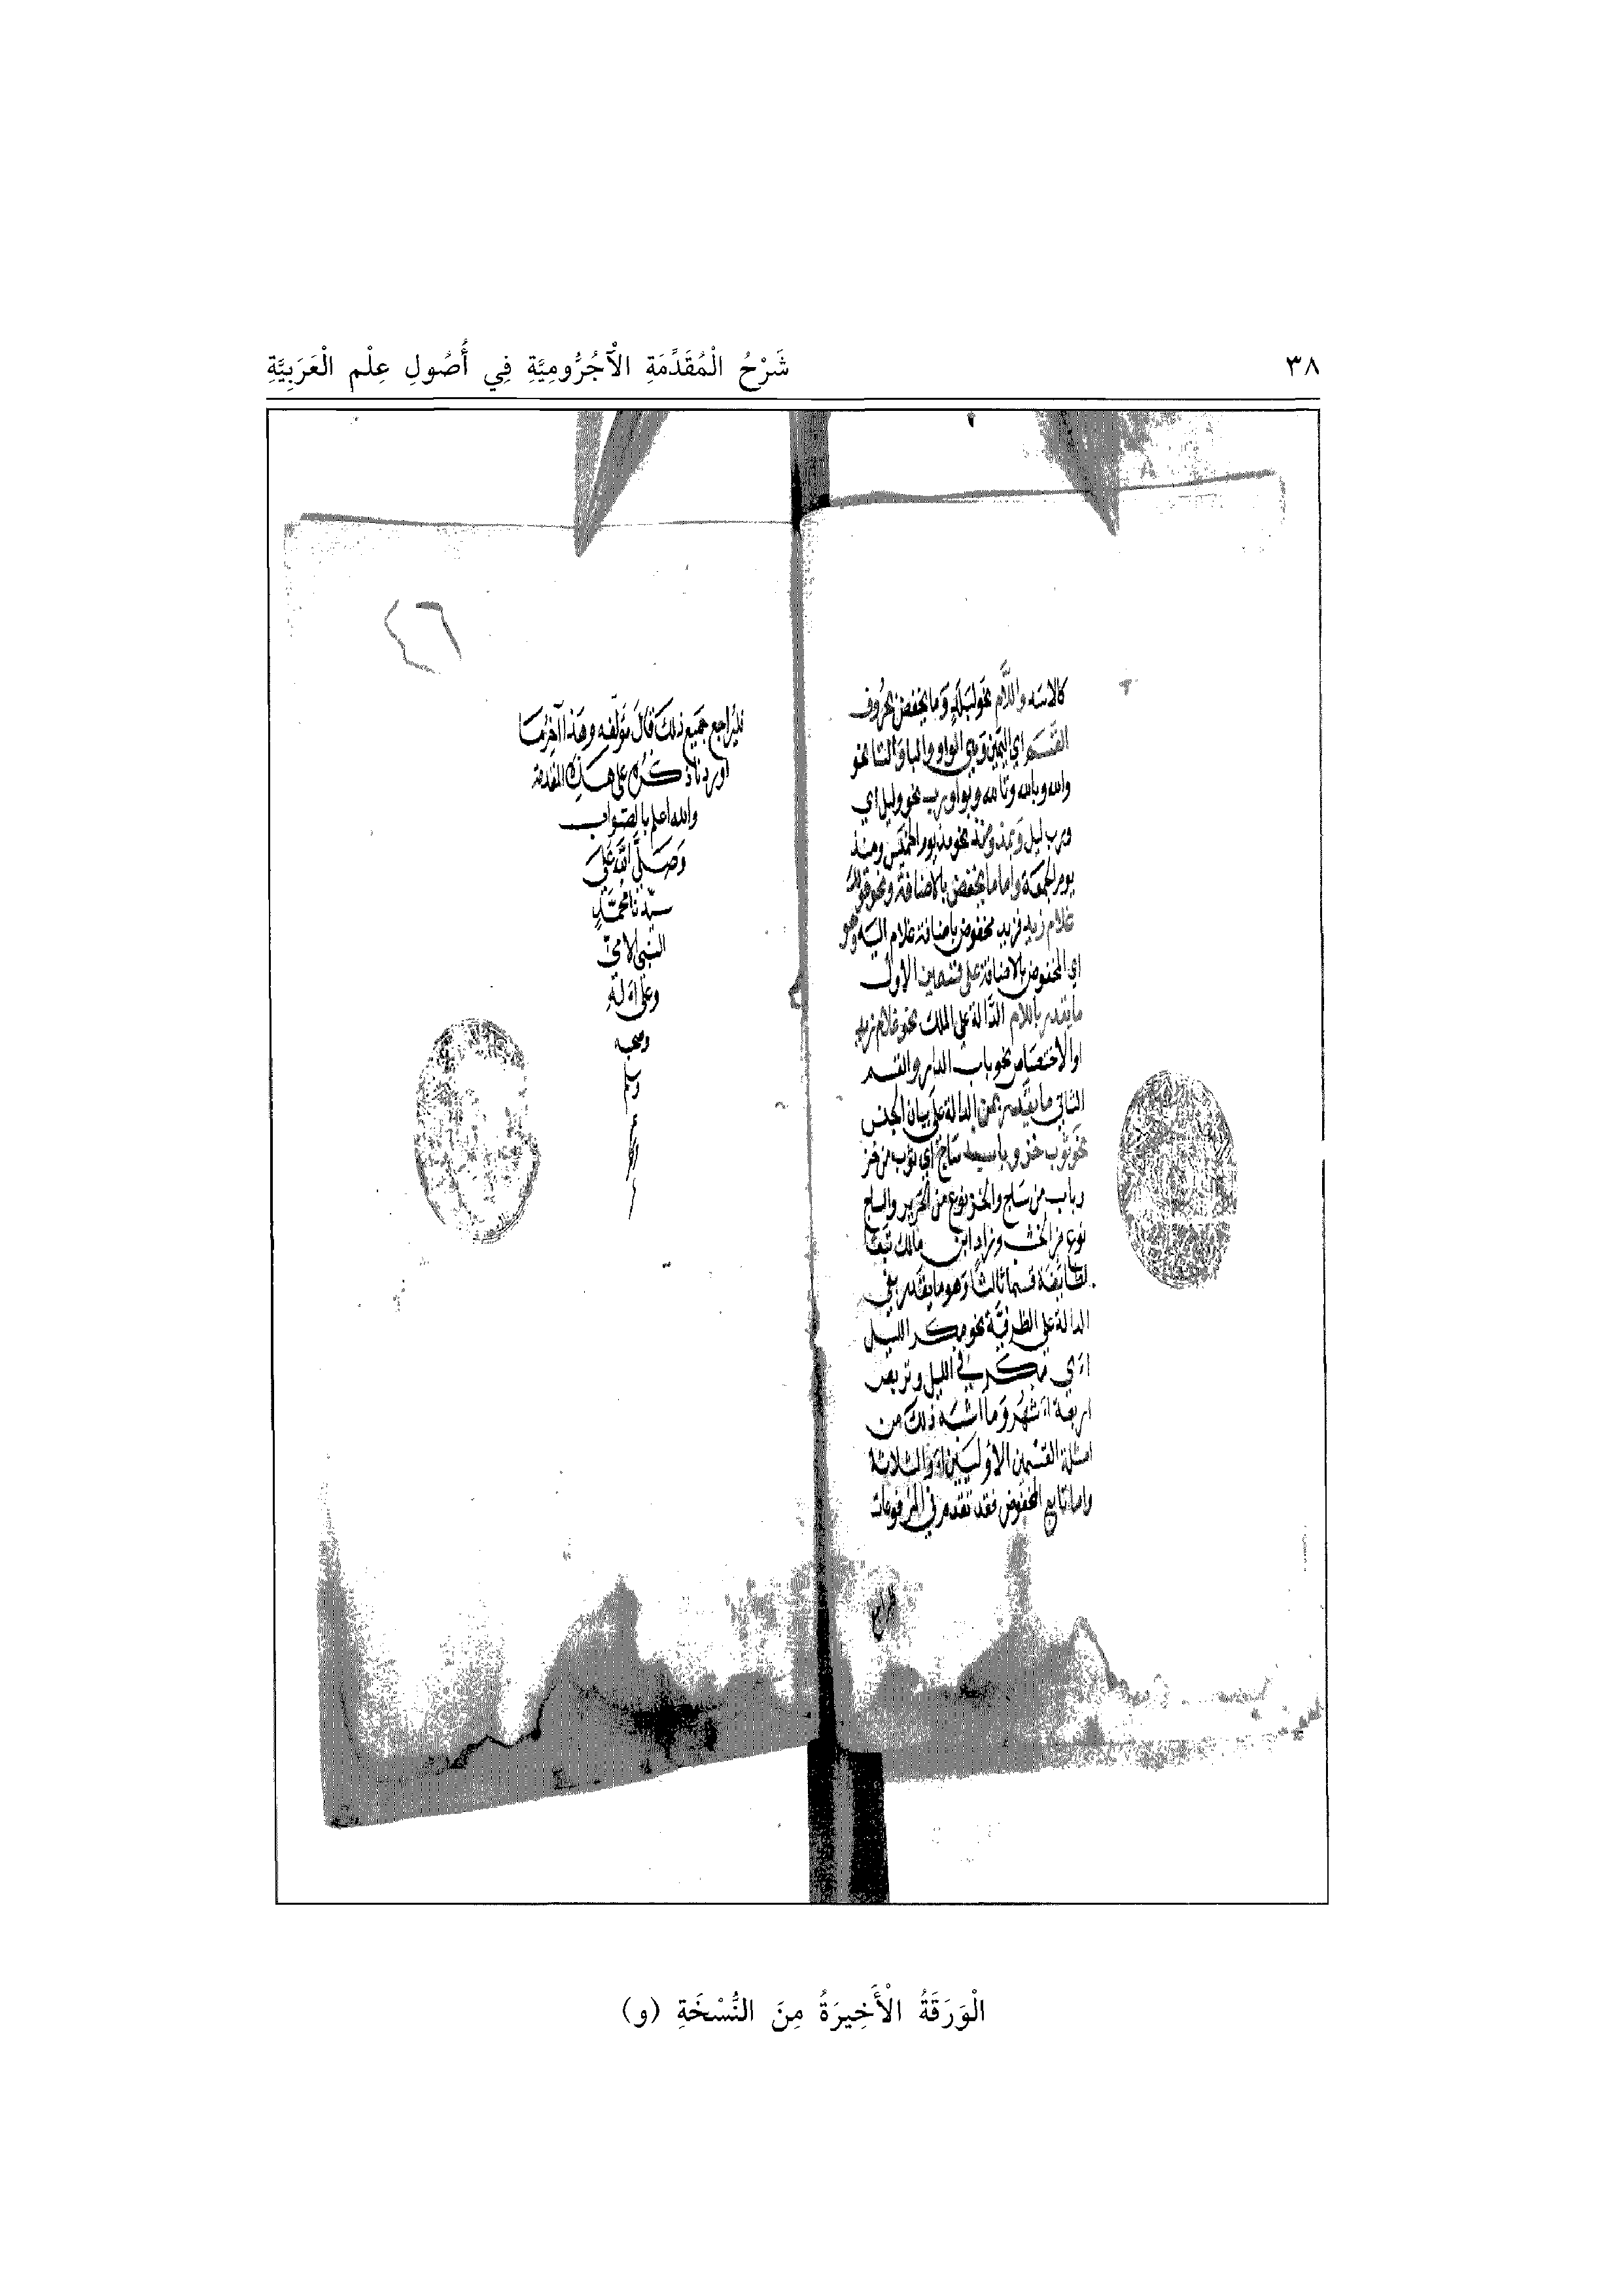 ٣٨
شَرْحُ الْمُقَدِّمَةِ الْآجُرُّومِيَّةِ فِي أُصُولِ عِلْمِ الْعَرَبِيَّةِ
كالاسد واللام نحو لزيد وَما يخفض بحروف
القسَم اي اليمين وهي الواو والبا والتا نحو
والله وبالله وتالله وبواو رب نحو وليل اي
ورب ليل وبمذ ومنذ نحو مذ يوم الخميس ومنذ
يوم الجمعة واما ما يخفض بالاضافة ونحو قولك
غلام زيد فزيد مخفوض باضافة غلام اليه وهو
اي المخفوض بالاضافة على قسمين الاول
ما يقدر باللام الدالة على الملك نحو غلام زيد
او الاختصاص نحو باب الدار والقسم
الثاني ما يقدر بمن الدالة على بيان الجنس
نحو ثوب خز وباب ساج اي ثوب من خز
وباب من ساج والخز نوع من الحرير والساج
نوع من الخشب وزاد ابن مالك تبعا
لطايفة قسما ثالثا وهو ما يقدر بفي
الدالة على الظرفية نحو مكر الليل
اي مكر في الليل وتربص
اربعة اشهر وما اشبه ذلك من
امثلة القسمين الاولين او الثلاثة
واما تابع المخفوض فقد تقدم في المرفوعات
فليراجع
٤٦
فليراجع جميع ذلك قال مؤلفه وهذا آخر ما
اوردنا ذكره على هذه المقدمة
والله اعلم بالصواب
وَصَلَّى الله على
سيدنا محمد
النبي الامي
وعلى اله
وصحبه
وسلم
الْوَرَقَةُ الْأَخِيرَةُ مِنَ النُّسْخَةِ (و)